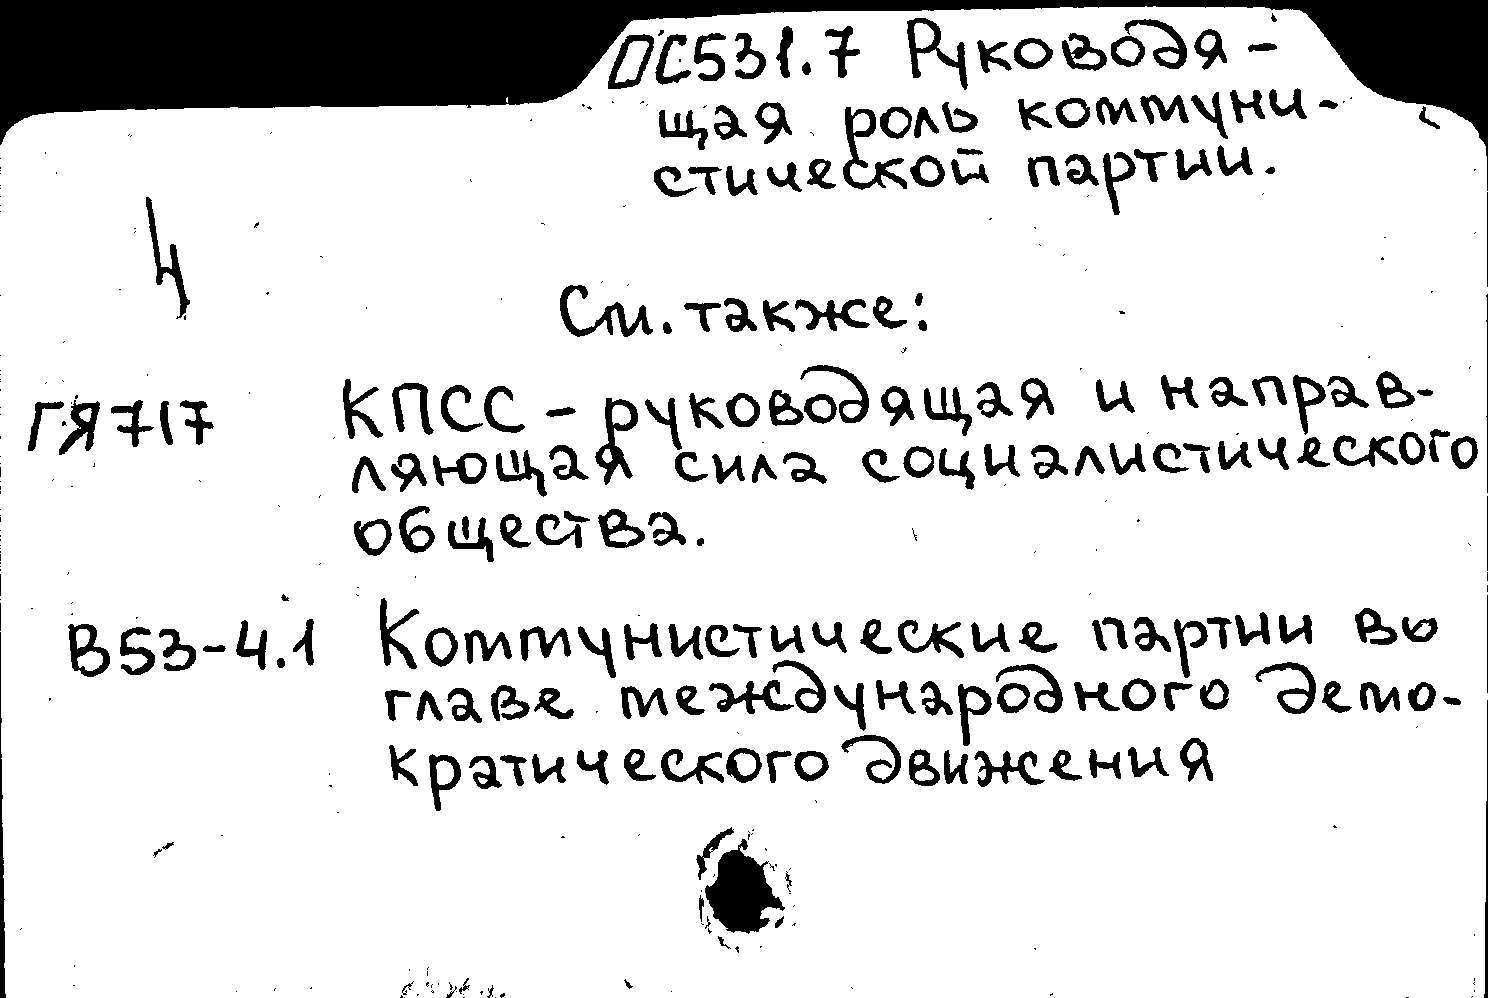 ОС531.7 Руководя-
щая роль коммуни-
стической партии.
4
См. также:
ГЯ717 КПСС - руководящая и направ-
ляющая сила социалистического
общества.
В53-4.1 Коммунистические партии во
главе международного демо-
кратического движения